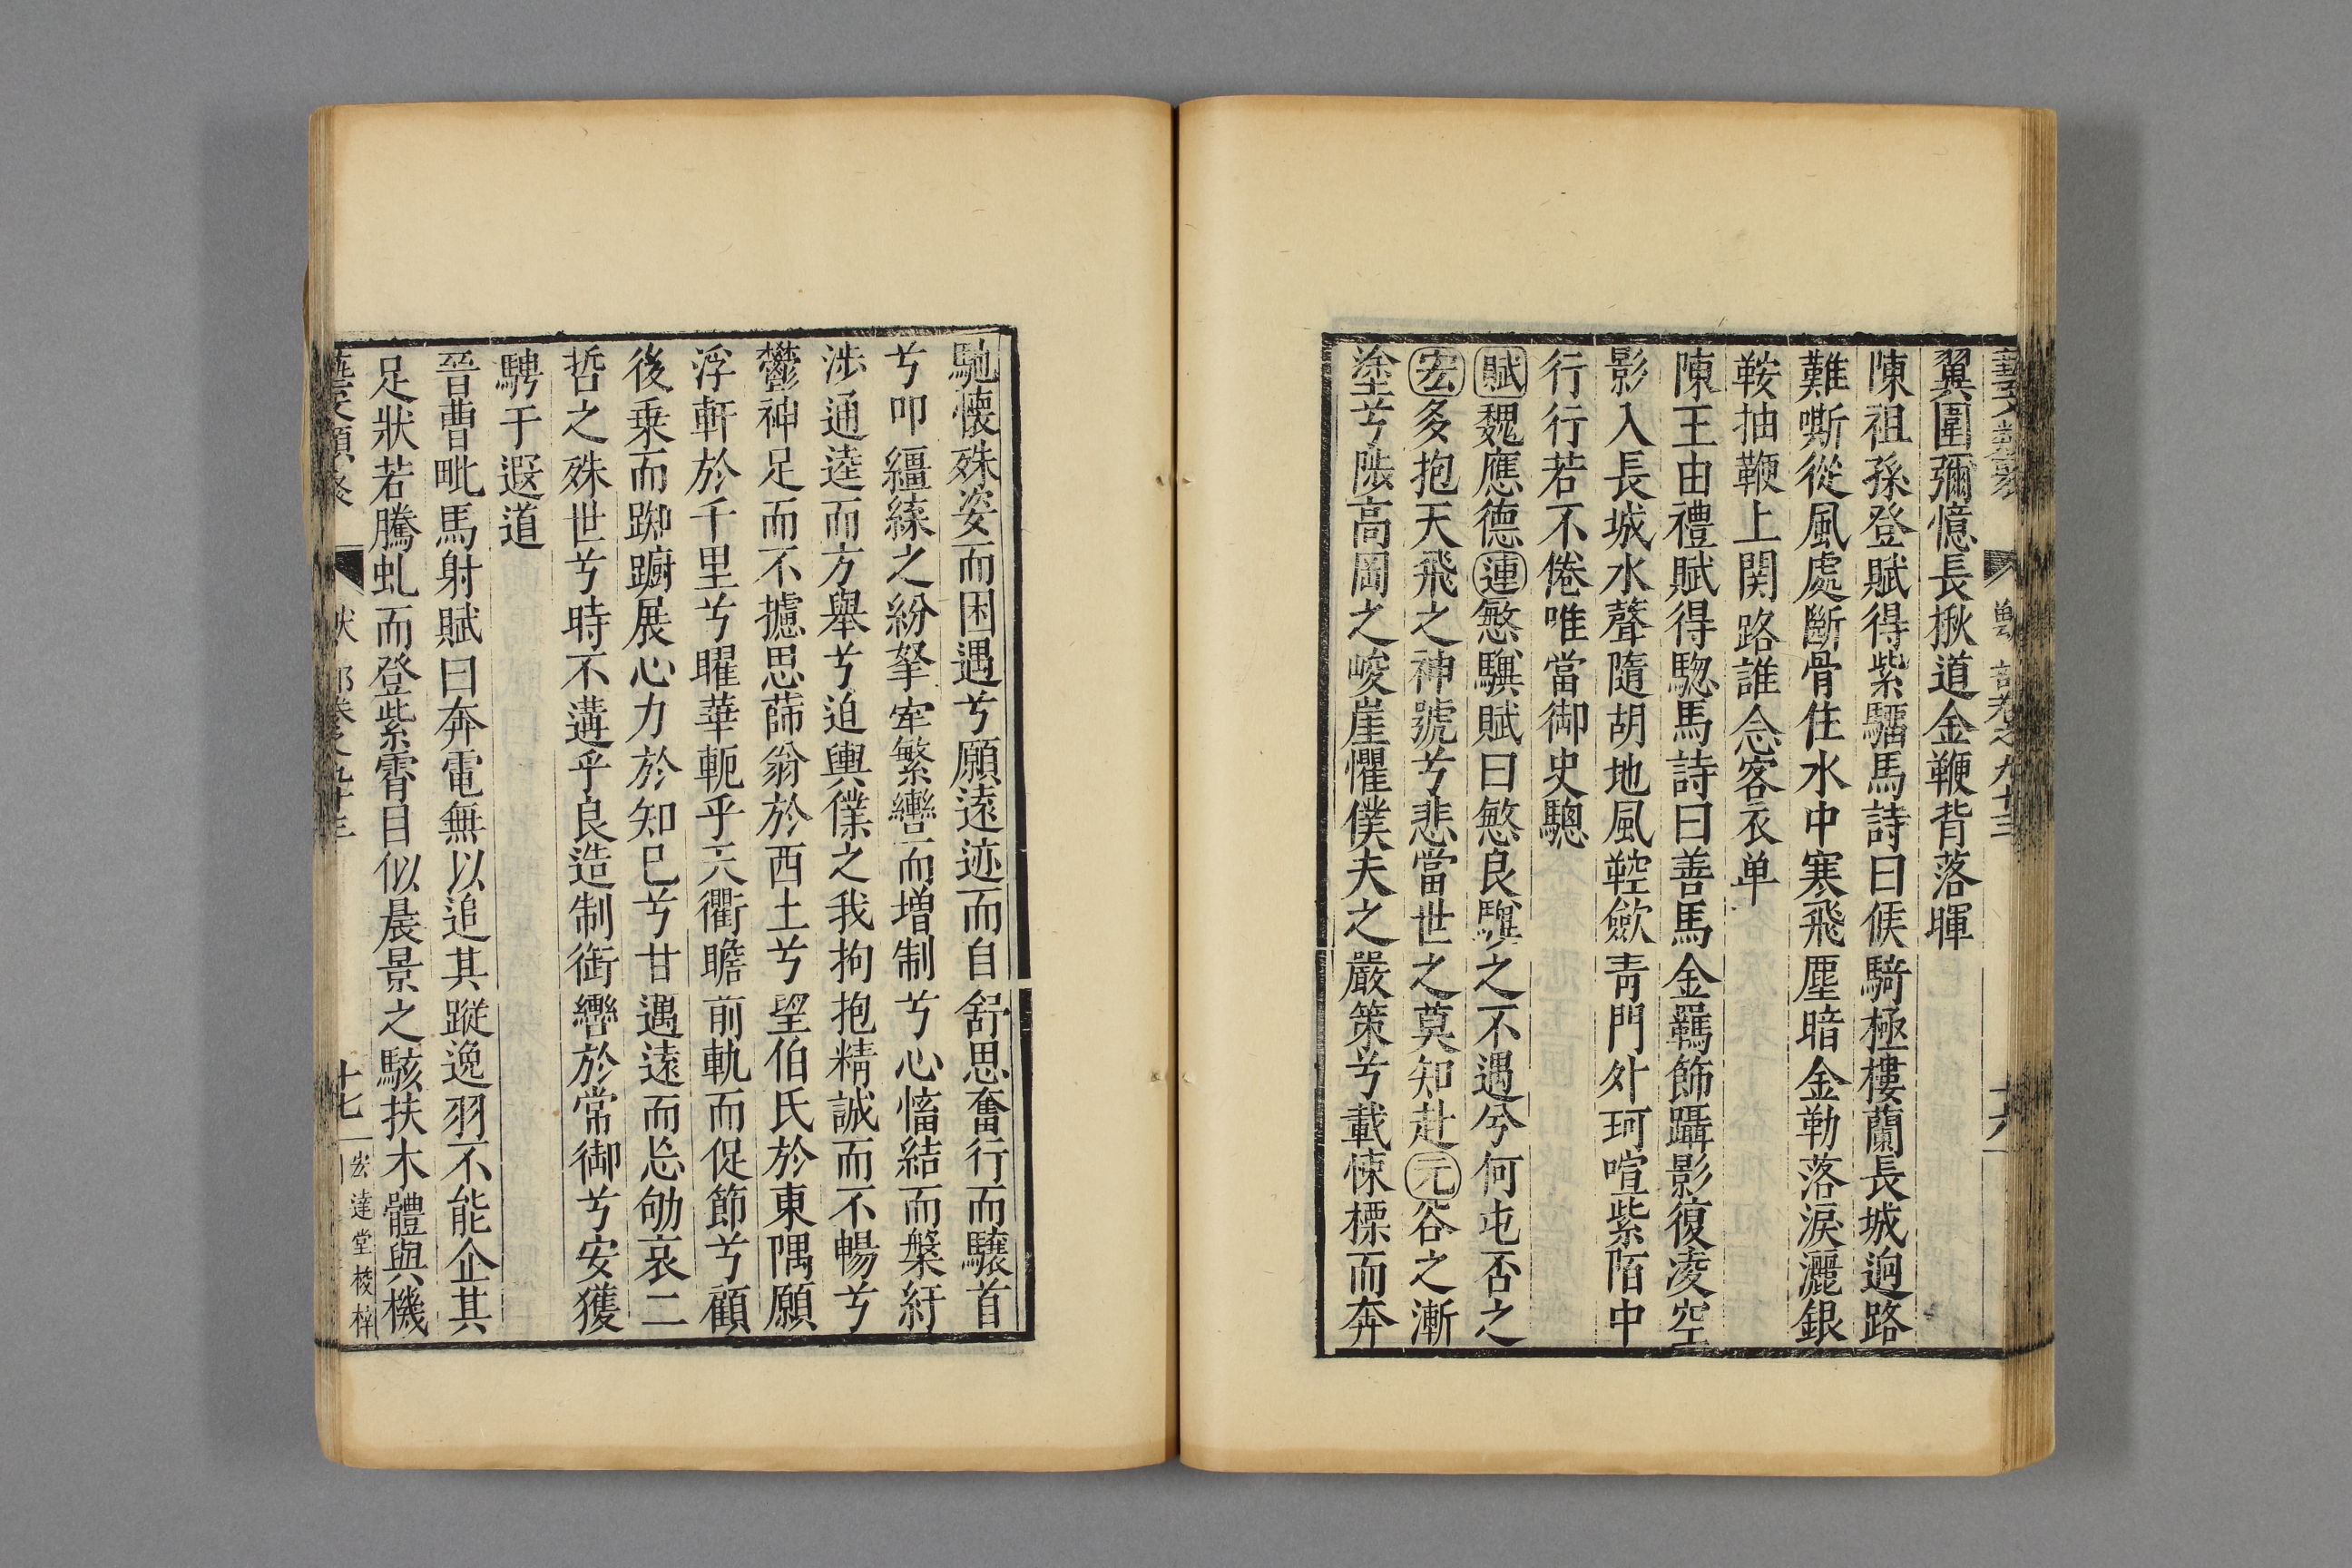 藝文類聚 獸部卷之九十三 十六
翼圍彌憶長楸道金鞭背落暉
陳祖孫登賦得紫騮馬詩曰候騎極樓蘭長城迥路
難嘶從風處斷骨住水中寒飛塵暗金勒落淚灑銀
鞍抽鞭上関路誰念客衣单
陳王由禮賦得驄馬詩曰善馬金羈飾躡影復凌空
影入長城水聲隨胡地風鞚斂青門外珂喧紫陌中
行行若不倦唯當御史驄
賦魏應德璉慜驥賦曰慜良驥之不遇兮何屯否之
宏多抱天飛之神號兮悲當世之莫知赴元谷之漸
塗兮陟高岡之峻崖懼僕夫之嚴策兮載悚慄而奔
馳懷殊姿而困遇兮願遠迹而自舒思奮行而驤首
兮叩繮緤之紛拏牽繁轡而增制兮心慉結而槃紆
涉通逵而方舉兮迫輿僕之我拘抱精誠而不暢兮
鬱神足而不攄思薛翁於西土兮望伯氏於東隅願
浮軒於千里兮曜華軛乎天衢瞻前軌而促節兮顧
後乗而踟躕展心力於知巳兮甘遇遠而忘劬哀二
哲之殊世兮時不遘乎良造制銜轡於常御兮安獲
騁于遐道
晉曹毗馬射賦曰奔電無以追其蹤逸羽不能企其
足狀若騰虬而登紫霄目似晨景之駭扶木體與機
藝文類聚 獸部卷之九十三 十七 宏達堂校梓